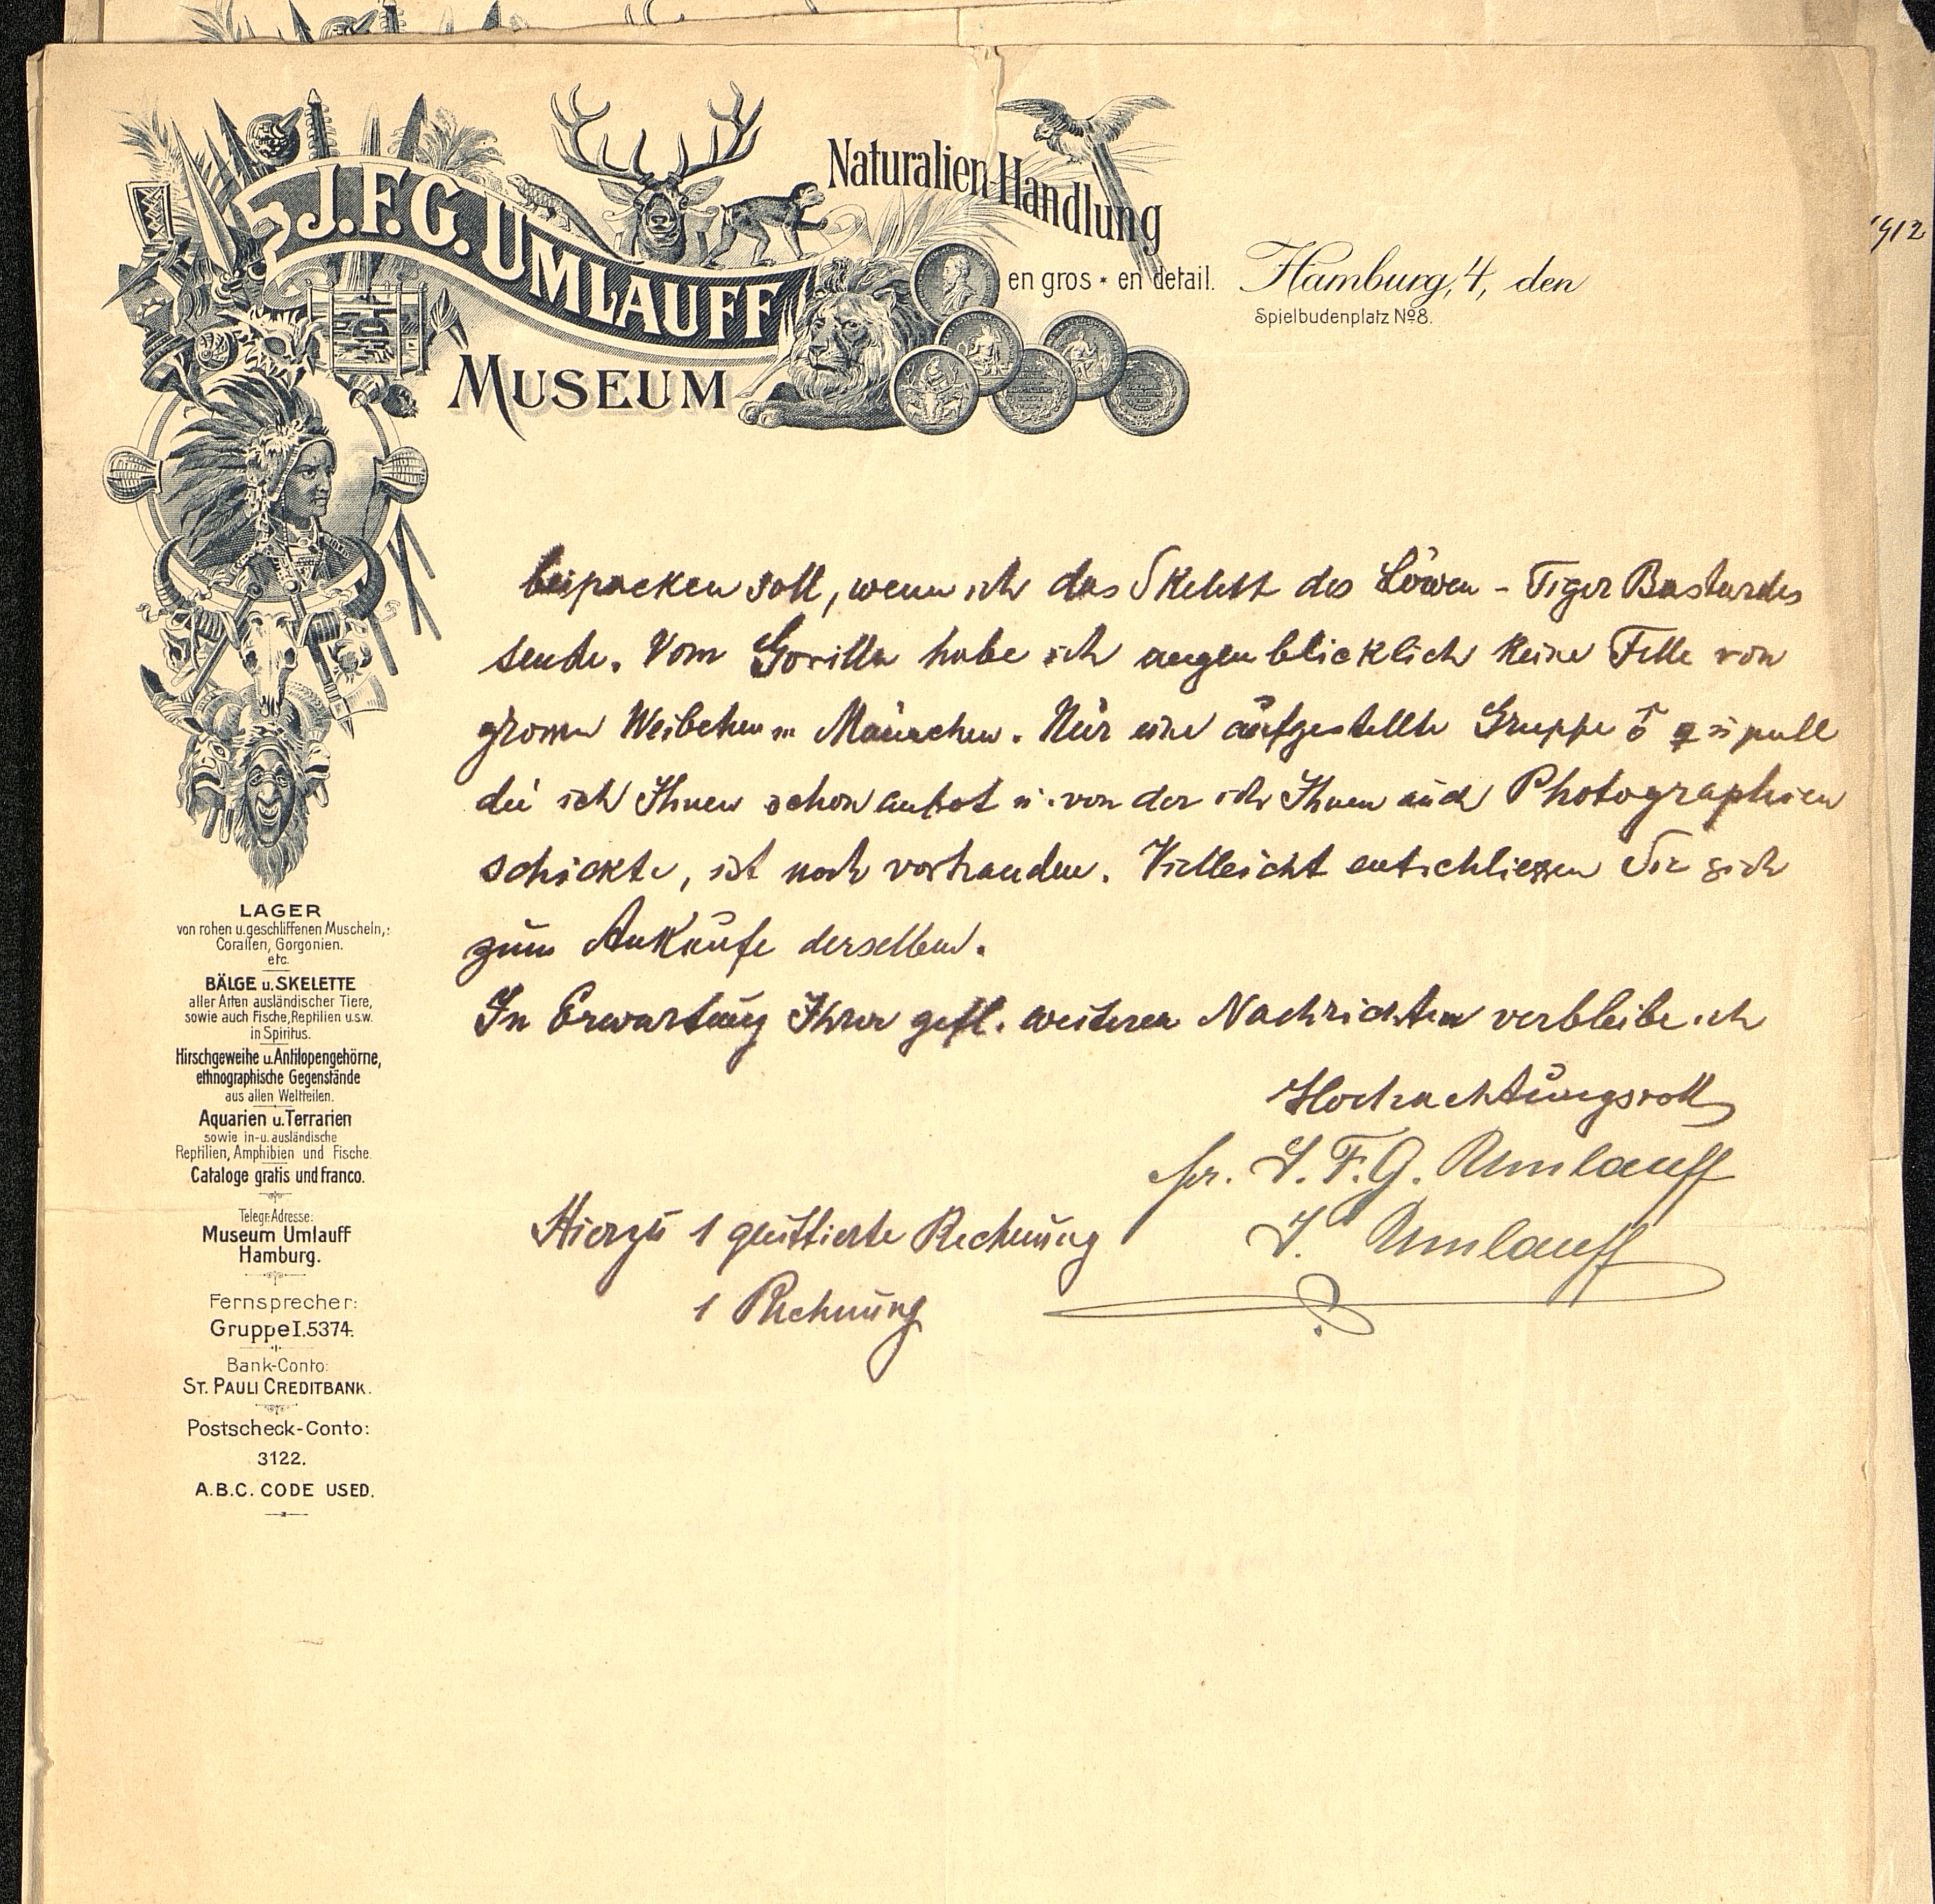 J.F.G. UMLAUFF
MUSEUM
Naturalien-Handlung
en gros * en detail.
Hamburg, 4, den
Spielbudenplatz No 8.
1912
beipacken soll, wenn ich das Skelett des Löwen - Tiger Bastardes
sende. Vom Gorilla habe ich augenblicklich keine Felle von
grossen Weibchen u. Männchen. Nur eine aufgestellte Gruppe ♂ ♀ u pull
die ich Ihnen schon anbot u. von der ich Ihnen auch Photographien
schickte, ist noch vorhanden. Vielleicht entschliessen Sie sich
zum Ankaufe derselben.
In Erwartung Ihrer gefl. weiteren Nachrichten verbleibe ich
Hochachtungsvoll
pr. J. F. G. Umlauff
J. Umlauff
Hierzu 1 quittierte Rechnung
1 Rechnung
LAGER
von rohen u. geschliffenen Muscheln,:
Corallen, Gorgonien.
etc.
BÄLGE u. SKELETTE
aller Arten ausländischer Tiere,
sowie auch Fische, Reptilien u.s.w.
in Spiritus.
Hirschgeweihe u. Antilopengehörne,
ethnographische Gegenstände
aus allen Weltteilen.
Aquarien u. Terrarien
sowie in- u. ausländische
Reptilien, Amphibien und Fische.
Cataloge gratis und franco.
Telegr. Adresse:
Museum Umlauff
Hamburg.
Fernsprecher:
Gruppe I. 5374.
Bank-Conto:
ST. PAULI CREDITBANK.
Postscheck-Conto:
3122.
A.B.C. CODE USED.